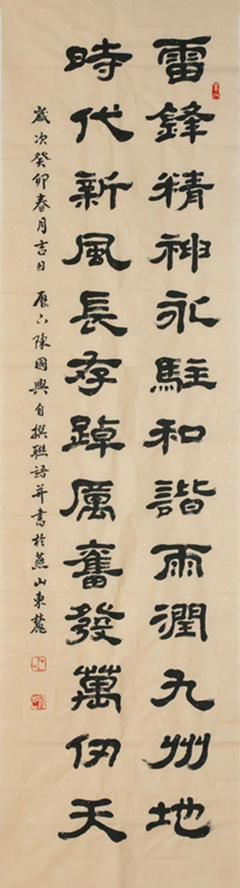 雷鋒精神永駐和諧雨潤九州地
時代新風長存踔厲奮發萬仞天
歲次癸卯春月吉日 陳國興自撰聯語並書於燕山東麓